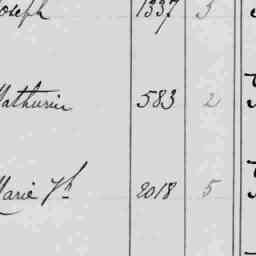 Joseph 1337 3
Mathurin 583 2
Marie Yh 2018 5